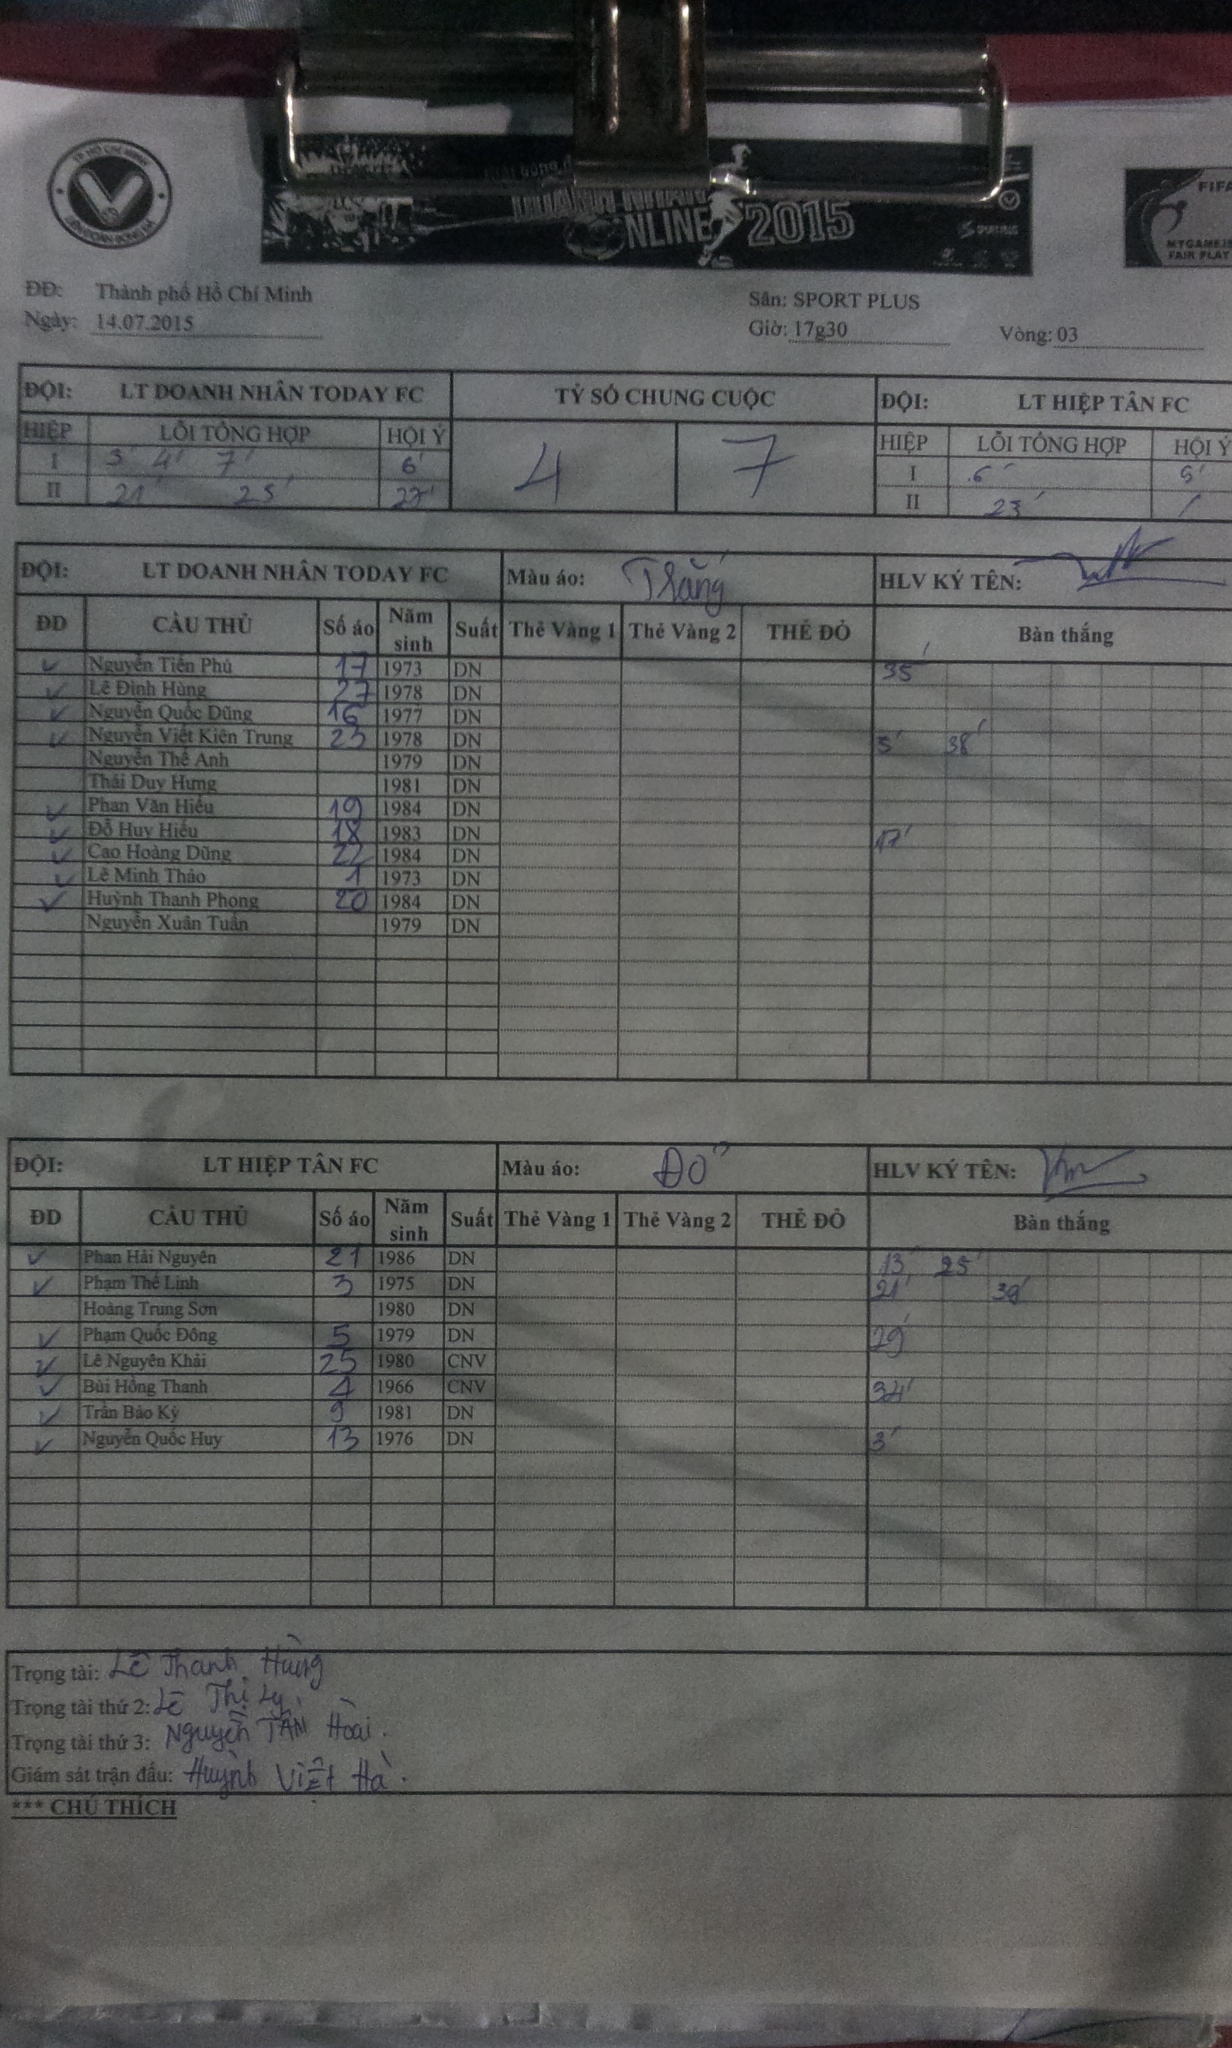 TP HỒ CHÍ MINH
LIÊN ĐOÀN BÓNG ĐÁ
DOANH NHÂN
ONLINE 2015
FIFA
MY GAME IS
FAIR PLAY
ĐĐ: Thành phố Hồ Chí Minh
Sân: SPORT PLUS
Ngày: 14.07.2015
Giờ: 17g30
Vòng: 03
ĐỘI: LT DOANH NHÂN TODAY FC TỶ SỐ CHUNG CUỘC ĐỘI: LT HIỆP TÂN FC
HIỆP LỖI TỔNG HỢP HỘI Ý 4 7 HIỆP LỖI TỔNG HỢP HỘI Ý
I 3' 4' 7' 6' I 6' 9'
II 21' 25' 27' II 23' /
ĐỘI: LT DOANH NHÂN TODAY FC Màu áo: Trắng HLV KÝ TÊN:
ĐD CẦU THỦ Số áo Năm sinh Suất Thẻ Vàng 1 Thẻ Vàng 2 THẺ ĐỎ Bàn thắng
✓ Nguyễn Tiến Phú 17 1973 DN 35'
✓ Lê Đình Hùng 27 1978 DN
✓ Nguyễn Quốc Dũng 16 1977 DN
✓ Nguyễn Viết Kiên Trung 23 1978 DN 5' 38'
Nguyễn Thế Anh 1979 DN
Thái Duy Hưng 1981 DN
✓ Phan Văn Hiếu 19 1984 DN
✓ Đỗ Huy Hiếu 18 1983 DN 17'
✓ Cao Hoàng Dũng 22 1984 DN
✓ Lê Minh Thảo 1 1973 DN
✓ Huỳnh Thanh Phong 20 1984 DN
Nguyễn Xuân Tuấn 1979 DN
ĐỘI: LT HIỆP TÂN FC Màu áo: Đỏ HLV KÝ TÊN:
ĐD CẦU THỦ Số áo Năm sinh Suất Thẻ Vàng 1 Thẻ Vàng 2 THẺ ĐỎ Bàn thắng
✓ Phan Hải Nguyên 21 1986 DN 13' 25'
✓ Phạm Thế Linh 3 1975 DN 21' 39'
Hoàng Trung Sơn 1980 DN
✓ Phạm Quốc Đông 5 1979 DN 29'
✓ Lê Nguyên Khải 25 1980 CNV
✓ Bùi Hồng Thanh 4 1966 CNV 34'
✓ Trần Bảo Kỳ 9 1981 DN
✓ Nguyễn Quốc Huy 13 1976 DN 3'
Trọng tài: Lê Thanh Hùng
Trọng tài thứ 2: Lê Thị Ly
Trọng tài thứ 3: Nguyễn Tấn Hoài.
Giám sát trận đấu: Huỳnh Việt Hà.
*** CHÚ THÍCH